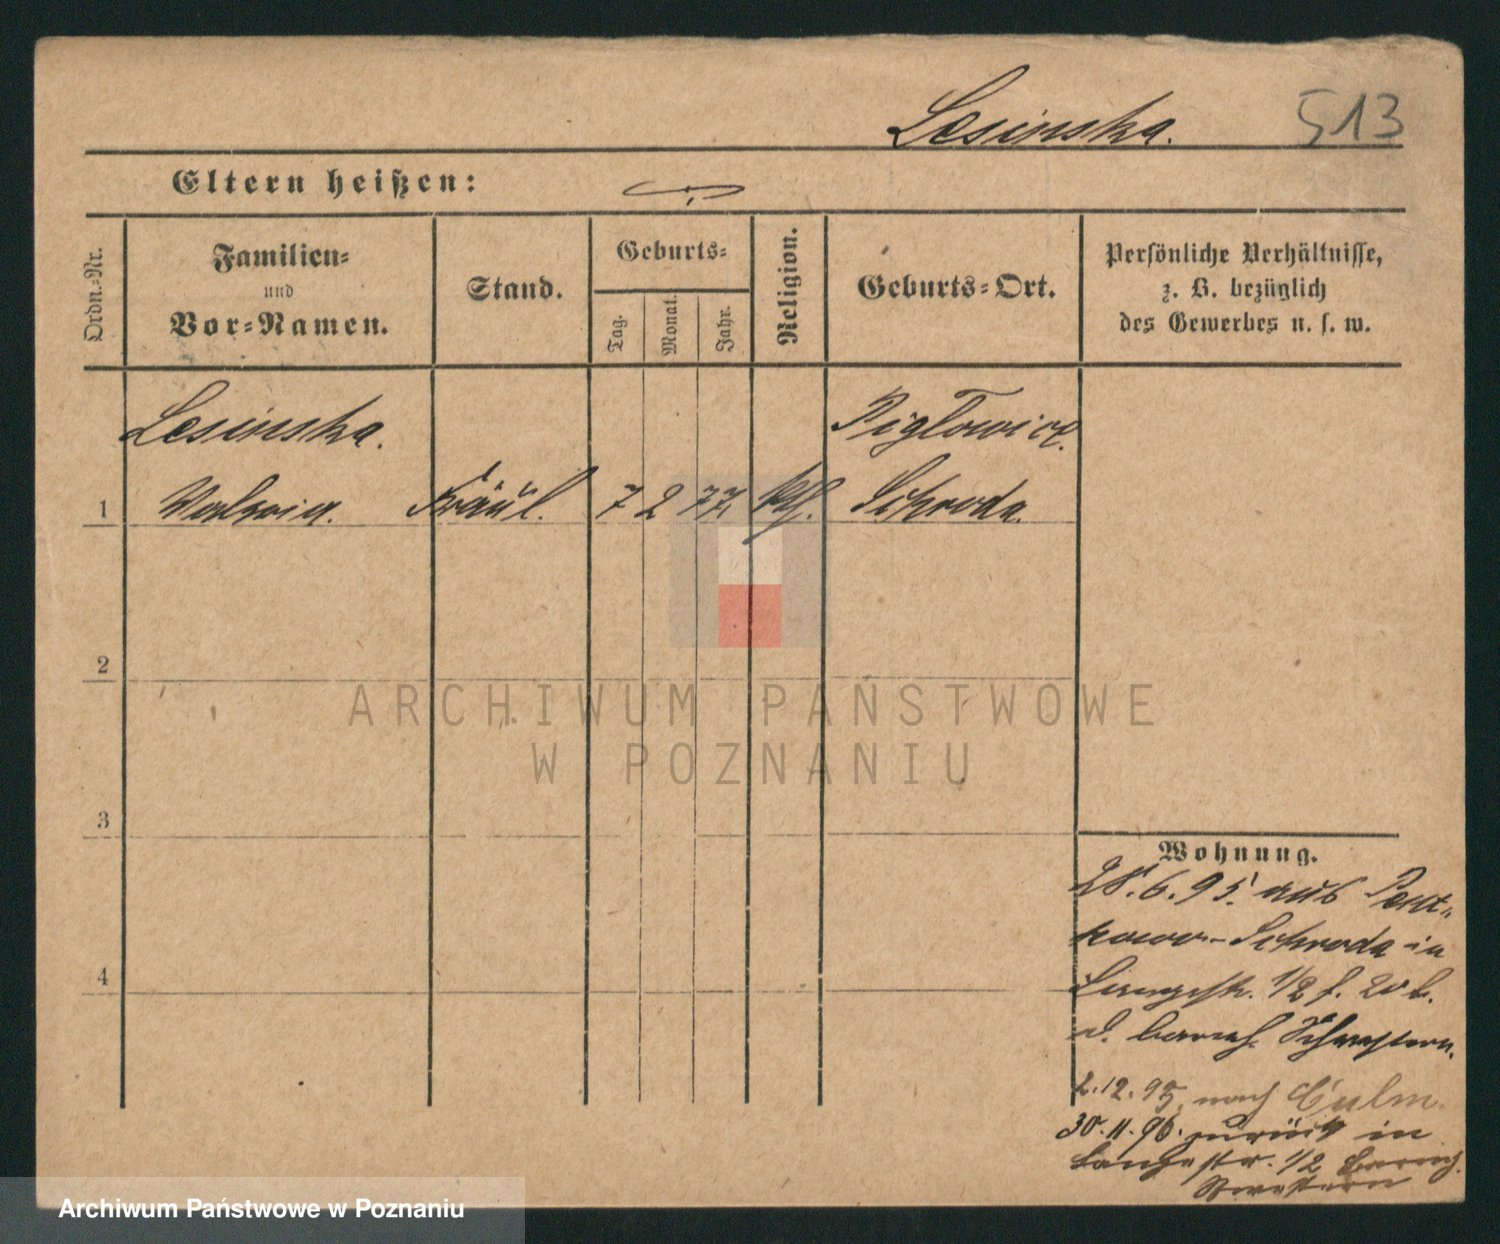 Lesinska.
513
Eltern heißen:
Ordn.-Nr.
Familien-
und
Vor-Namen.
Stand.
Geburts-
Tag.
Monat.
Jahr.
Religion.
Geburts-Ort.
Persönliche Verhältnisse,
z. B. bezüglich
des Gewerbes u. s. w.
Lesinska.
Piglowice.
1 Fräul. 7 2 77. kth. Schroda.
2
3
4
Wohnung.
28.6.95. aus Pent-
kowo-Schroda in
Langestr. 1/2 f. 20 b.
d. barmh. Schwestern.
2.12.95. nach Culm.
30.11.96. zurück in
Langestr. 1/2 Barmh.
ARCHIWUM PAŃSTWOWE
W POZNANIU
Archiwum Państwowe w Poznaniu